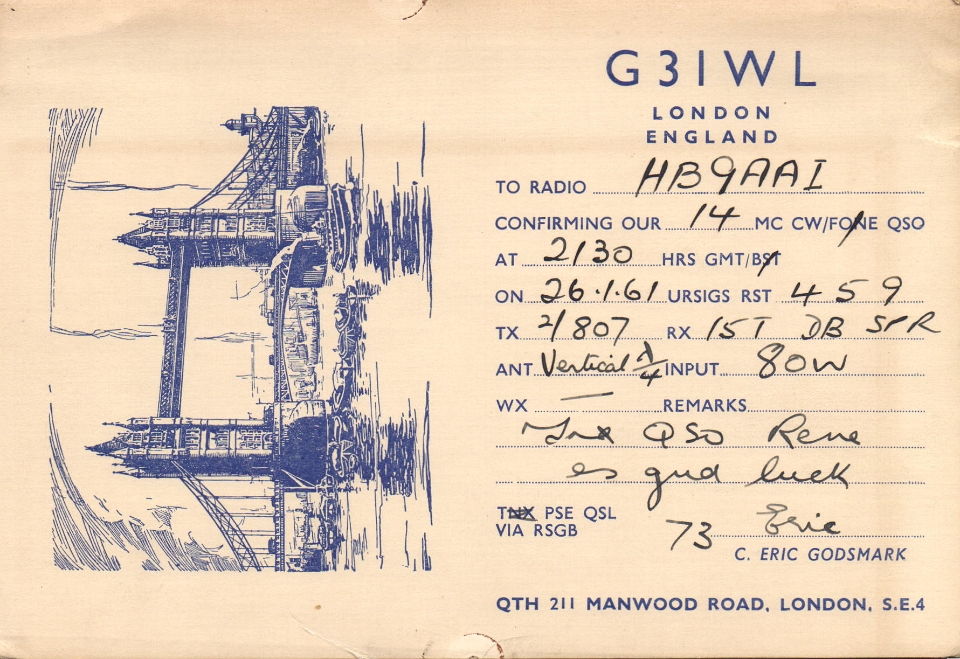 G3IWL
LONDON
ENGLAND
TO RADIO HB9AAI
CONFIRMING OUR 14 MC CW/FONE QSO
AT 2130 HRS GMT/BST
ON 26.1.61 UR SIGS RST 459
TX 2/807 RX 15T DB SPR
ANT Vertical λ/4 INPUT 80W
WX — REMARKS
Tnx QSO Rene
es gud luck
TNX PSE QSL
VIA RSGB
73 Eric
C. ERIC GODSMARK
QTH 211 MANWOOD ROAD, LONDON, S.E.4